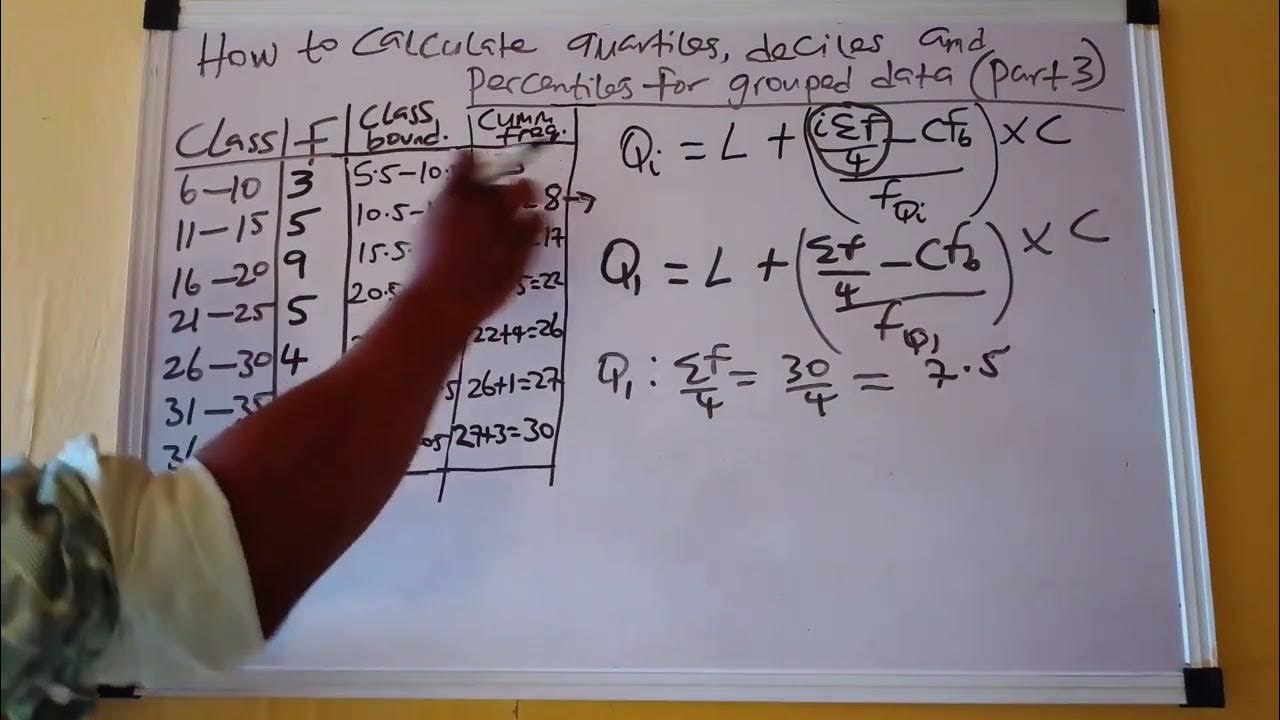 How to calculate quartiles, deciles and
percentiles for grouped data (part 3)
Class | F | Class bound. | Cumm freq.
6-10 3 5.5-10.
11-15 5 10.5- 8 →
16-20 9 15.5 17
21-25 5 20.5 5=22
26-30 4 22+4=26
31-35 5 26+1=27
3 .05 27+3=30
Qi = L + (iΣf/4 - Cfb / fQi) × C
Q1 = L + (Σf/4 - Cfb / fQ1) × C
Q1 : Σf/4 = 30/4 = 7.5